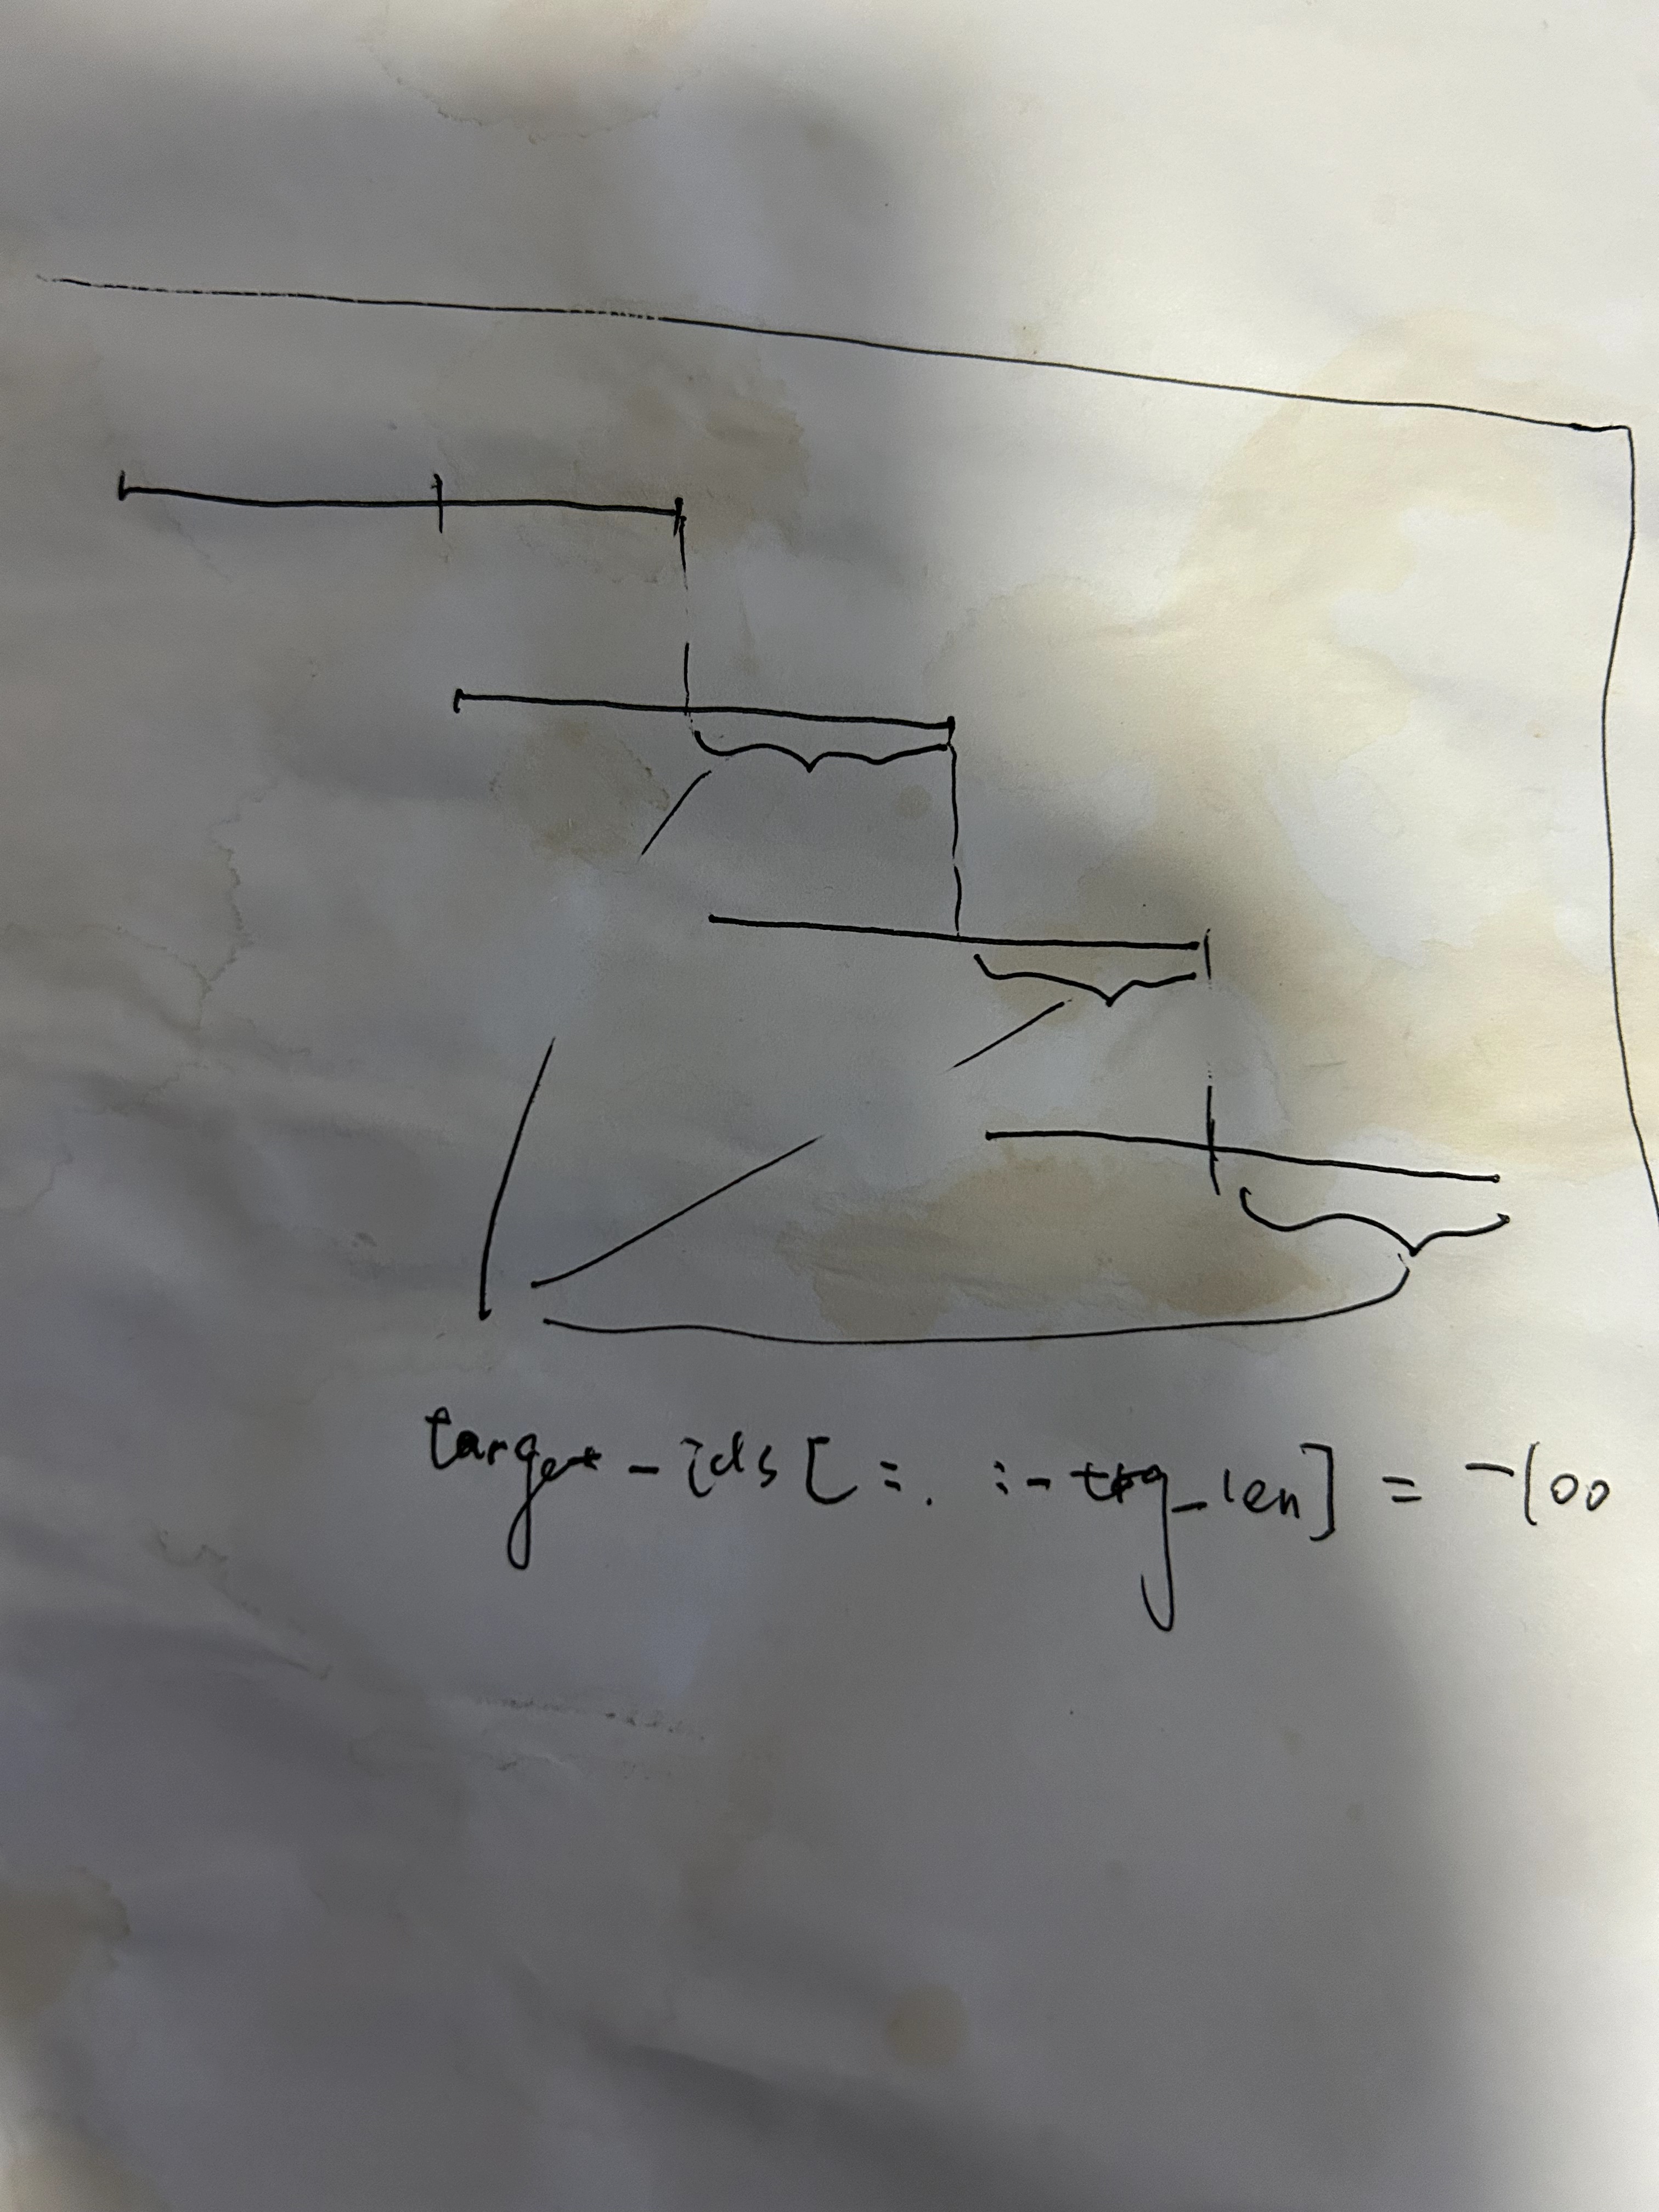 target_ids[:. :-trg_len] = -100